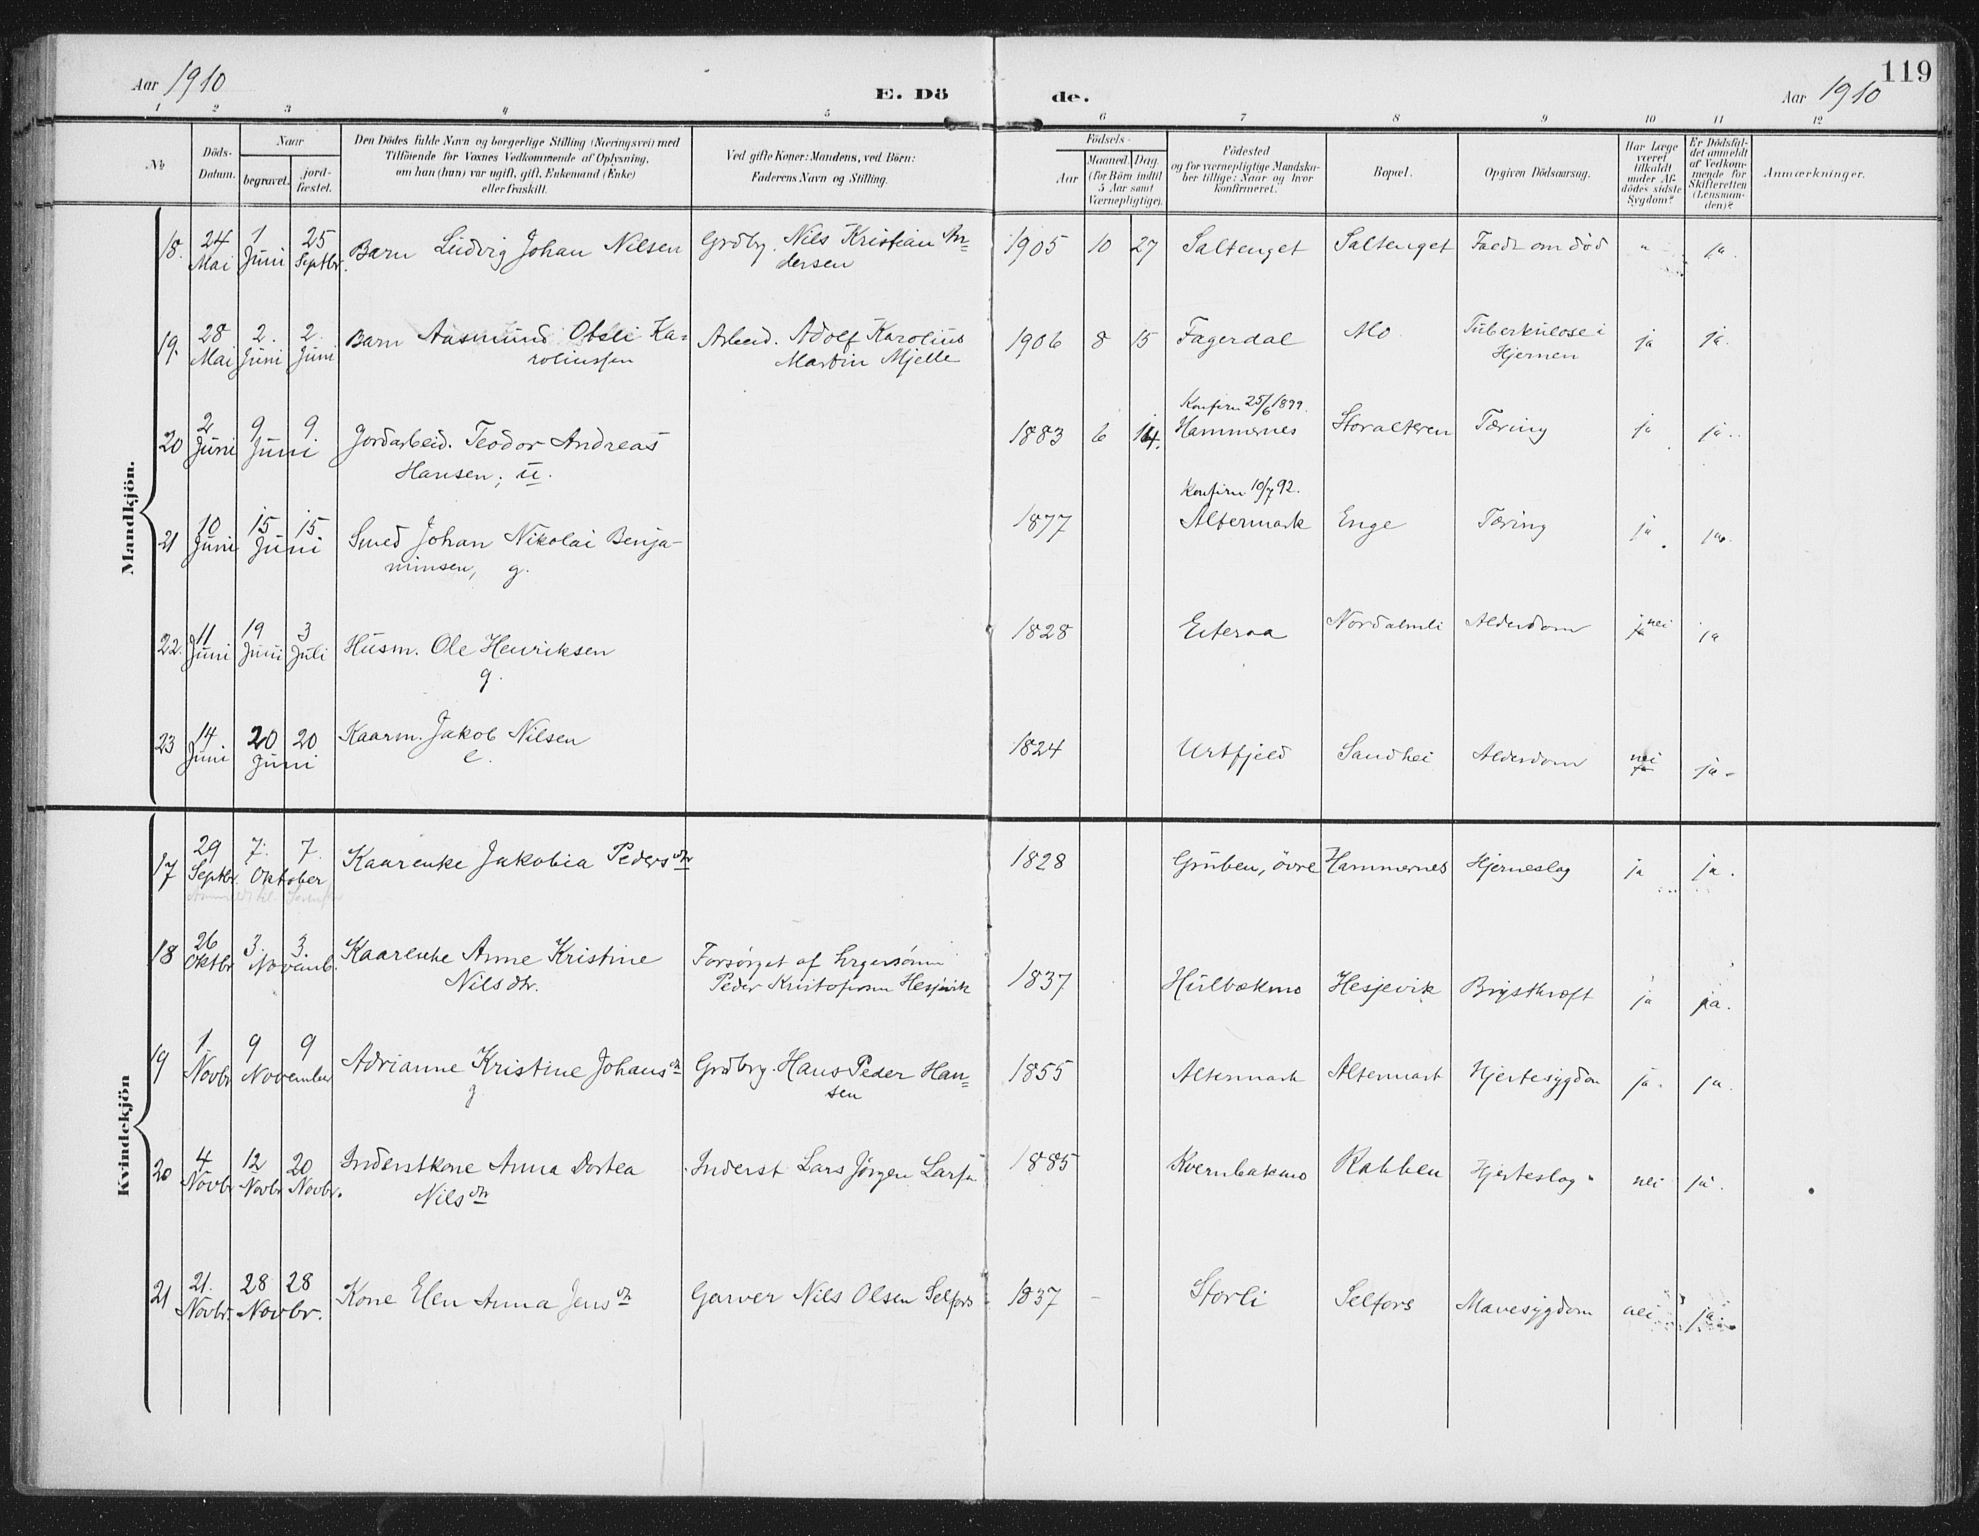 Aar 1910
E. Dö
de.
Aar 1910
119
1 2 3 4 5 6 7 8 9 10 11 12
No
Döds-
Datum.
Naar
begravet.
jord-
fæstet.
Den Dödes fulde Navn og borgerlige Stilling (Næringsvei) med
Tilföiende for Voxnes Vedkommende af Oplysning,
om han (hun) var ugift, gift, Enkemand (Enke)
eller fraskilt.
Ved gifte Koner: Mandens, ved Börn:
Faderens Navn og Stilling.
Födsels-
Aar
Maaned. Dag.
(for Börn indtil
5 Aar samt
Værnepligtige).
Födested
og for værnepligtige Mandska-
ber tillige: Naar og hvor
konfirmeret.
Bopæl.
Opgiven Dödsaarsag.
Har Læge
været
tilkaldt
under Af-
dödes sidste
Sygdom?
Er Dödsfal-
det anmeldt
af Vedkom-
mende for
Skifteretten
(Lensman-
den)?
Anmærkninger.
Mandkjön.
18. 24 Mai 1 Juni 25 Septbr. Barn Ludvig Johan Nilsen Grdbr. Nils Kristian An- 1905 10 27 Saltenget Saltenget Fædt om død " ja.
dersen
19. 28 Mai 2. Juni 2. Juni Barn Aasmund Ka- Arbeid. Adolf Karolius 1906 8 15 Fagerdal Mo. Tuberkulose i ja ja.
roliussen Martin Mjelle Hjernen
Konfirm 25/6 1899.
20 2 Juni 9 9 Juni Jordarbeid. Teodor Andreas 1883 6 14. Hammernes Storalteren Tæring ja ja.
Hansen; u.
Konfirm 10/7 92.
21 10 Juni 15 15 Juni Smed Johan Nikolai Benja- 1877 Altermark Enge Tæring ja ja.
minsen, g.
22. 11 Juni 19 Juni 3 Juli Husm. Ole Henriksen 1828 Eiteraa Alderdom ja nei ja
g.
23 14 Juni 20 20 Juni Kaarm. Jakob Nilsen 1824 Urtfjeld Sandhei Alderdom nei ja ja.
e.
Kvindekjön
17 29 Septbr. 7. 7. Oktober Kaarenke Jakobia Pedersdtr 1828 Gruben, övre Hammernes Hjerneslag ja ja.
18 26 Oktbr 3. 3. Novemb. Kaarenke Anne Kristine Forsørget af
Nilsdtr. Peder Hesjevik 1837 Hulbækmo Hesjevik Brystkræft ja ja.
19 1. Novbr 9 9 November Adrianne Kristine Johansdtr Grdbrg. Hans Peder Han- 1855 Altermark Altermark Hjertesygdom ja. ja.
g sen
20 4 Novbr 12 Novbr 20 Novbr. Inderstkone Anna Dortea Inderst Lars Jørgen Larsen 1885 Kvernbækmo Rabben Hjerteslag. nei ja.
Nilsdtr
21 21. Novbr. 28 28 Novbr. Kone Elen Anna Jensdtr Garver Nils Olsen Selfors 1837 - Storli Selfors Mavesygdom nei ja.